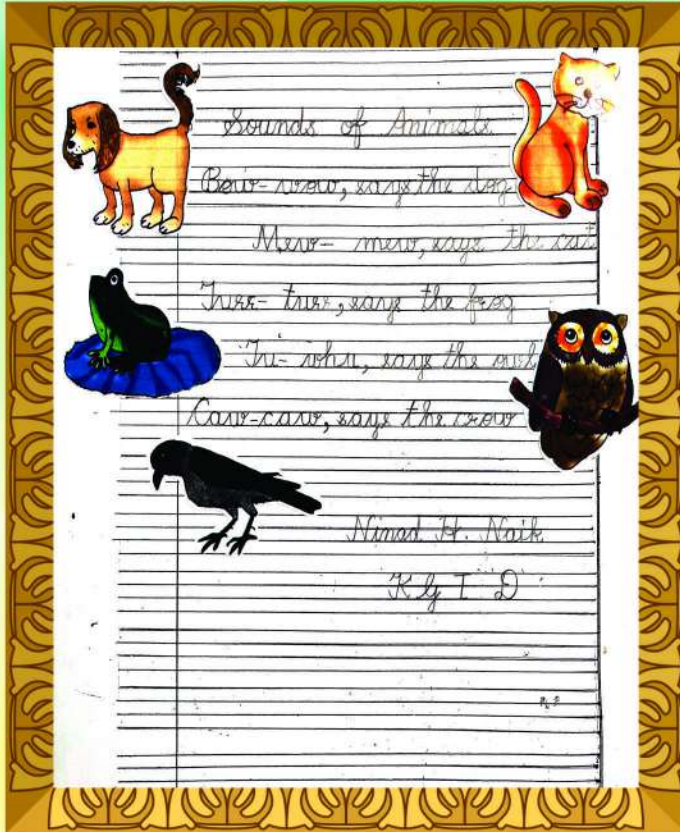 Sounds of Animals
Bow-wow, says the dog
Mew- mew, says the cat
Turr- turr, says the frog
Tu- whu, says the owl
Caw-caw, says the crow
Ninad H. Naik
Kg I D